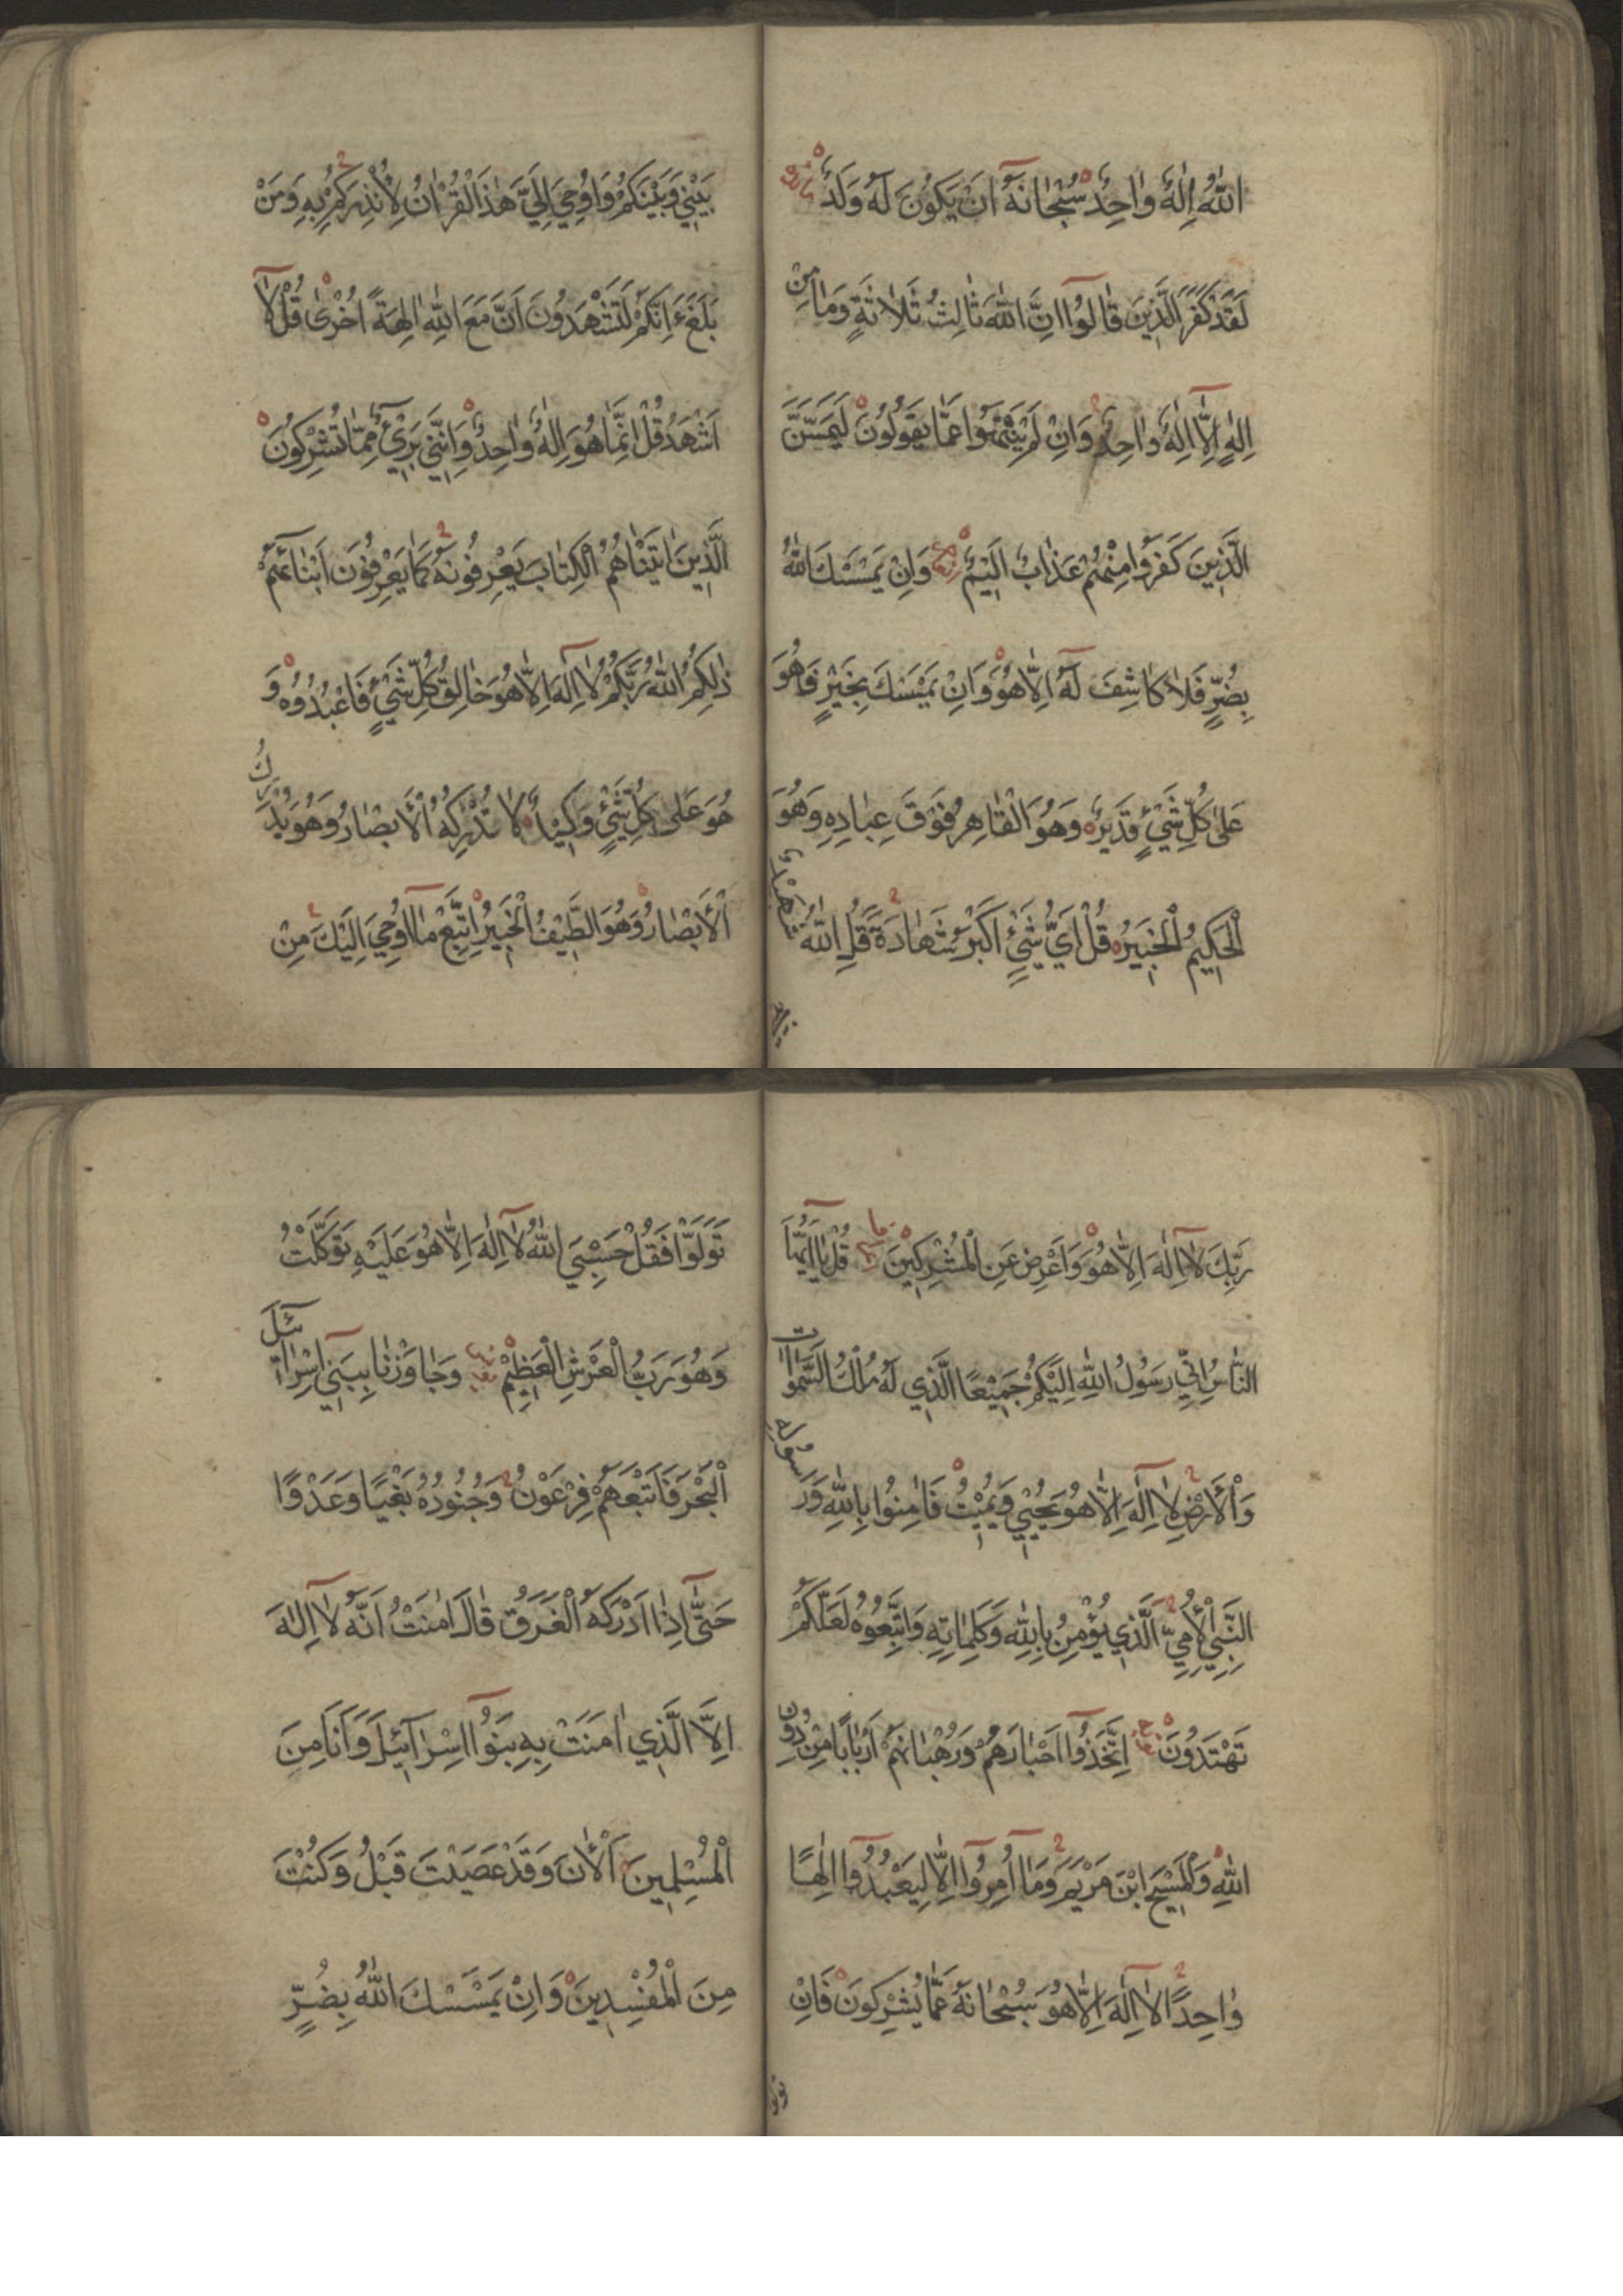 اللّٰهُ اِلٰهٌ وٰاحِدٌ سُبْحٰانَهُ اَنْ يَكُونَ لَهُ وَلَدٌ
لَقَدْ كَفَرَ الَّذِينَ قٰالُوا اِنَّ اللّٰهَ ثٰالِثُ ثَلٰاثَةٍ وَمٰا مِنْ
اِلٰهٍ اِلَّا اِلٰهٌ وٰاحِدٌ وَاِنْ لَمْ يَنْتَهُوا عَمّٰا يَقُولُونَ لَيَمَسَّنَّ
الَّذِينَ كَفَرُوا مِنْهُمْ عَذٰابٌ اَلِيمٌ وَاِنْ يَمْسَسْكَ اللّٰهُ
بِضُرٍّ فَلٰا كٰاشِفَ لَهُ اِلّٰا هُوَ وَاِنْ يَمْسَسْكَ بِخَيْرٍ فَهُوَ
عَلٰى كُلِّ شَيْءٍ قَدِيرٌ وَهُوَ الْقٰاهِرُ فَوْقَ عِبٰادِهِ وَهُوَ
الْحَكِيمُ الْخَبِيرُ قُلْ اَيُّ شَيْءٍ اَكْبَرُ شَهٰادَةً قُلِ اللّٰهُ شَهِيدٌ
بَيْنِي وَبَيْنَكُمْ وَاُوحِيَ اِلَيَّ هٰذَا الْقُرْاٰنُ لِاُنْذِرَكُمْ بِهِ وَمَنْ
بَلَغَ ءَاِنَّكُمْ لَتَشْهَدُونَ اَنَّ مَعَ اللّٰهِ اٰلِهَةً اُخْرٰى قُلْ لٰا
اَشْهَدُ قُلْ اِنَّمٰا هُوَ اِلٰهٌ وٰاحِدٌ وَاِنَّنِي بَرِيءٌ مِمّٰا تُشْرِكُونَ
الَّذِينَ اٰتَيْنٰاهُمُ الْكِتٰابَ يَعْرِفُونَهُ كَمٰا يَعْرِفُونَ اَبْنٰاءَهُمْ
ذٰلِكُمُ اللّٰهُ رَبُّكُمْ لٰا اِلٰهَ اِلّٰا هُوَ خٰالِقُ كُلِّ شَيْءٍ فَاعْبُدُوهُ وَ
هُوَ عَلٰى كُلِّ شَيْءٍ وَكِيلٌ لٰا تُدْرِكُهُ الْاَبْصٰارُ وَهُوَ يُدْرِكُ
الْاَبْصٰارَ وَهُوَ اللَّطِيفُ الْخَبِيرُ اِتَّبِعْ مٰا اُوحِيَ اِلَيْكَ مِنْ
رَبِّكَ لٰا اِلٰهَ اِلّٰا هُوَ وَاَعْرِضْ عَنِ الْمُشْرِكِينَ قُلْ يٰا اَيُّهَا
النّٰاسُ اِنِّي رَسُولُ اللّٰهِ اِلَيْكُمْ جَمِيعًا الَّذِي لَهُ مُلْكُ السَّمٰوٰاتِ
وَالْاَرْضِ لٰا اِلٰهَ اِلّٰا هُوَ يُحْيِي وَيُمِيتُ فَاٰمِنُوا بِاللّٰهِ وَرَسُولِهِ
النَّبِيِّ الْاُمِّيِّ الَّذِي يُؤْمِنُ بِاللّٰهِ وَكَلِمٰاتِهِ وَاتَّبِعُوهُ لَعَلَّكُمْ
تَهْتَدُونَ اِتَّخَذُوا اَحْبٰارَهُمْ وَرُهْبٰانَهُمْ اَرْبٰابًا مِنْ دُونِ
اللّٰهِ وَالْمَسِيحَ ابْنَ مَرْيَمَ وَمٰا اُمِرُوا اِلّٰا لِيَعْبُدُوا اِلٰهًا
وٰاحِدًا لٰا اِلٰهَ اِلّٰا هُوَ سُبْحٰانَهُ عَمّٰا يُشْرِكُونَ فَاِنْ
تَوَلَّوْا فَقُلْ حَسْبِيَ اللّٰهُ لٰا اِلٰهَ اِلّٰا هُوَ عَلَيْهِ تَوَكَّلْتُ
وَهُوَ رَبُّ الْعَرْشِ الْعَظِيمِ وَجٰاوَزْنٰا بِبَنِي اِسْرٰائِلَ
الْبَحْرَ فَاَتْبَعَهُمْ فِرْعَوْنُ وَجُنُودُهُ بَغْيًا وَعَدْوًا
حَتّٰى اِذٰا اَدْرَكَهُ الْغَرَقُ قٰالَ اٰمَنْتُ اَنَّهُ لٰا اِلٰهَ
اِلَّا الَّذِي اٰمَنَتْ بِهِ بَنُوا اِسْرٰائِلَ وَاَنَا مِنَ
الْمُسْلِمِينَ اٰلْاٰنَ وَقَدْ عَصَيْتَ قَبْلُ وَكُنْتَ
مِنَ الْمُفْسِدِينَ وَاِنْ يَمْسَسْكَ اللّٰهُ بِضُرٍّ